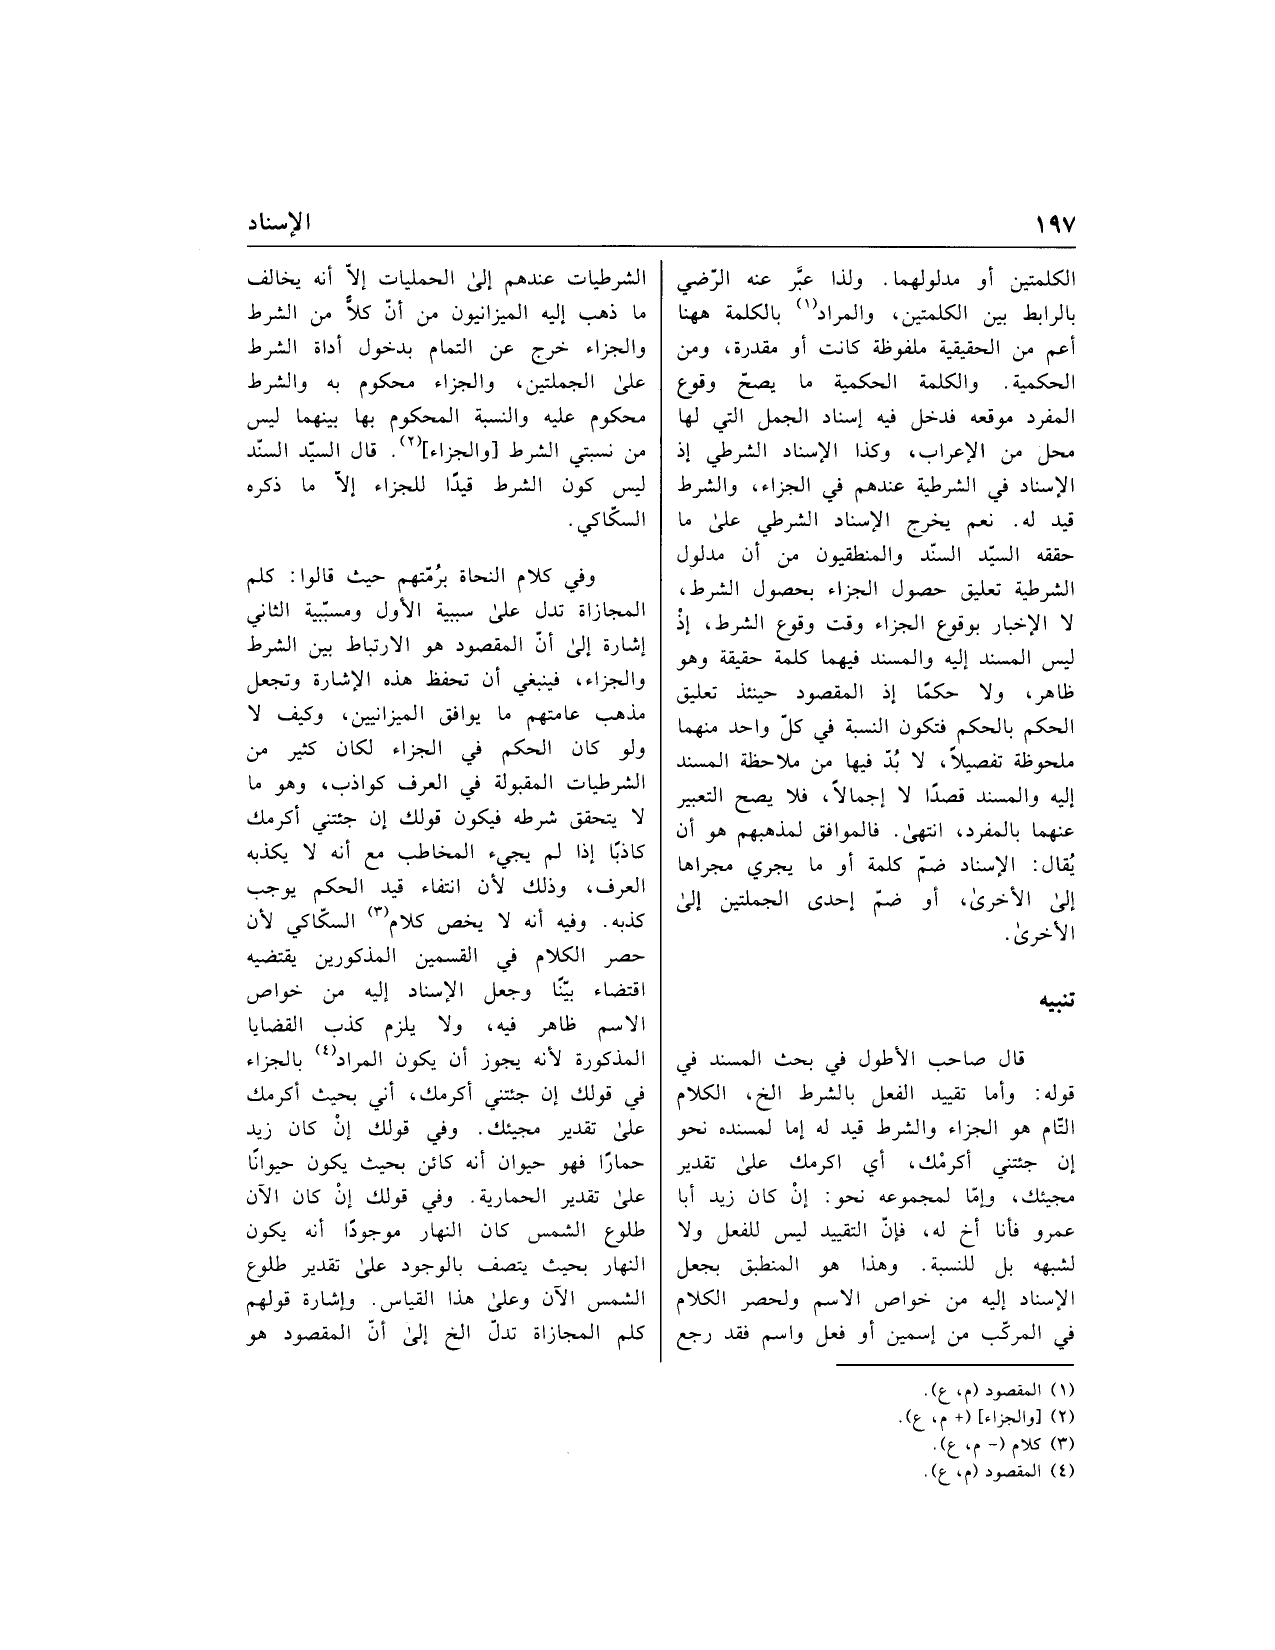 ١٩٧
الإسناد
الكلمتين أو مدلولهما. ولذا عبَّر عنه الرّضي
بالرابط بين الكلمتين، والمراد(١) بالكلمة ههنا
أعم من الحقيقية ملفوظة كانت أو مقدرة، ومن
الحكمية. والكلمة الحكمية ما يصحّ وقوع
المفرد موقعه فدخل فيه إسناد الجمل التي لها
محل من الإعراب، وكذا الإسناد الشرطي إذ
الإسناد في الشرطية عندهم في الجزاء، والشرط
قيد له. نعم يخرج الإسناد الشرطي علىٰ ما
حققه السيّد السنّد والمنطقيون من أن مدلول
الشرطية تعليق حصول الجزاء بحصول الشرط،
لا الإخبار بوقوع الجزاء وقت وقوع الشرط، إذْ
ليس المسند إليه والمسند فيهما كلمة حقيقة وهو
ظاهر، ولا حكمًا إذ المقصود حينئذ تعليق
الحكم بالحكم فتكون النسبة في كلّ واحد منهما
ملحوظة تفصيلاً، لا بُدّ فيها من ملاحظة المسند
إليه والمسند قصدًا لا إجمالاً، فلا يصح التعبير
عنهما بالمفرد، انتهىٰ. فالموافق لمذهبهم هو أن
يُقال: الإسناد ضمّ كلمة أو ما يجري مجراها
إلىٰ الأخرىٰ، أو ضمّ إحدى الجملتين إلىٰ
الأخرىٰ.
تنبيه
قال صاحب الأطول في بحث المسند في
قوله: وأما تقييد الفعل بالشرط الخ، الكلام
التّام هو الجزاء والشرط قيد له إما لمسنده نحو
إن جئتني أكرمْك، أي اكرمك علىٰ تقدير
مجيئك، وإمّا لمجموعه نحو: إنْ كان زيد أبا
عمرو فأنا أخ له، فإنّ التقييد ليس للفعل ولا
لشبهه بل للنسبة. وهذا هو المنطبق بجعل
الإسناد إليه من خواص الاسم ولحصر الكلام
في المركّب من إسمين أو فعل واسم فقد رجع
الشرطيات عندهم إلىٰ الحمليات إلاّ أنه يخالف
ما ذهب إليه الميزانيون من أنّ كلاًّ من الشرط
والجزاء خرج عن التمام بدخول أداة الشرط
علىٰ الجملتين، والجزاء محكوم به والشرط
محكوم عليه والنسبة المحكوم بها بينهما ليس
من نسبتي الشرط [والجزاء](٢). قال السيّد السنّد
ليس كون الشرط قيدًا للجزاء إلاّ ما ذكره
السكّاكي.
وفي كلام النحاة برُمّتهم حيث قالوا: كلم
المجازاة تدل علىٰ سببية الأول ومسبّبية الثاني
إشارة إلىٰ أنّ المقصود هو الارتباط بين الشرط
والجزاء، فينبغي أن تحفظ هذه الإشارة وتجعل
مذهب عامتهم ما يوافق الميزانيين، وكيف لا
ولو كان الحكم في الجزاء لكان كثير من
الشرطيات المقبولة في العرف كواذب، وهو ما
لا يتحقق شرطه فيكون قولك إن جئتني أكرمك
كاذبًا إذا لم يجيء المخاطب مع أنه لا يكذبه
العرف، وذلك لأن انتفاء قيد الحكم يوجب
كذبه. وفيه أنه لا يخص كلام(٣) السكّاكي لأن
حصر الكلام في القسمين المذكورين يقتضيه
اقتضاء بيّنًا وجعل الإسناد إليه من خواص
الاسم ظاهر فيه، ولا يلزم كذب القضايا
المذكورة لأنه يجوز أن يكون المراد(٤) بالجزاء
في قولك إن جئتني أكرمك، أني بحيث أكرمك
علىٰ تقدير مجيئك. وفي قولك إنْ كان زيد
حمارًا فهو حيوان أنه كائن بحيث يكون حيوانًا
علىٰ تقدير الحمارية. وفي قولك إنْ كان الآن
طلوع الشمس كان النهار موجودًا أنه يكون
النهار بحيث يتصف بالوجود علىٰ تقدير طلوع
الشمس الآن وعلىٰ هذا القياس. وإشارة قولهم
كلم المجازاة تدلّ الخ إلىٰ أنّ المقصود هو
(١) المقصود (م، ع).
(٢) [والجزاء] (+ م، ع).
(٣) كلام (- م، ع).
(٤) المقصود (م، ع).